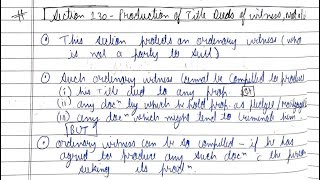 # Section 130 - Production of Title Deeds of witness, not a
• This section protects an ordinary witness (who
is not a party to suit)
• Such ordinary witness cannot be compelled to produce
(i) his title deed to any prop. or
(ii) any docⁿ by which he hold prop. as pledgee/mortgagee
(iii) any docⁿ which might tend to criminate him
BUT
• ordinary witness can be so compelled - if he has
agreed to produce any such docⁿ c̄ the person
seeking its prodⁿ